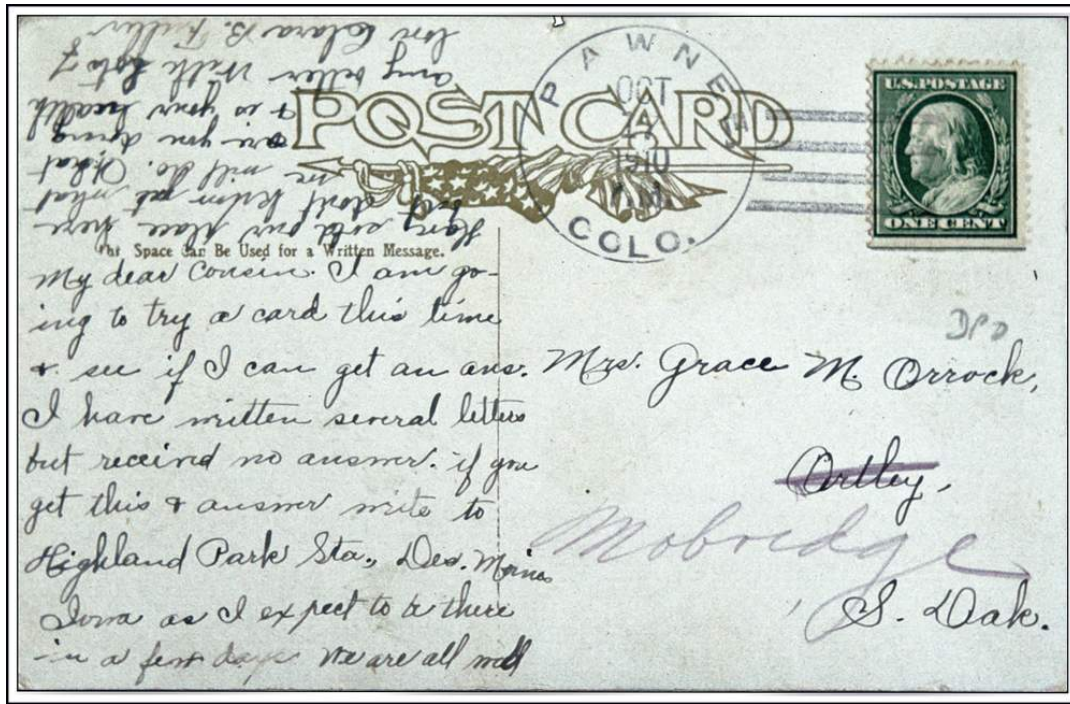 POST CARD
PAWNEE
OCT
1910
COLO.
U.S. POSTAGE
ONE CENT
The Space Can Be Used for a Written Message.
My dear Cousin. I am go-
ing to try a card this time
& see if I can get an ans.
I have written several letters
but received no answer. if you
get this & answer write to
Highland Park Sta., Des. Moines
Iowa as I expect to be there
in a few days We are all well
Have sold our place here
but don't know yet what
we will do. What
are you doing
& is your health
any better With lots of
love Clara B. Fuller
DPO
Mrs. Grace M. Orrock,
Ortley,
Mobridge
S. Dak.